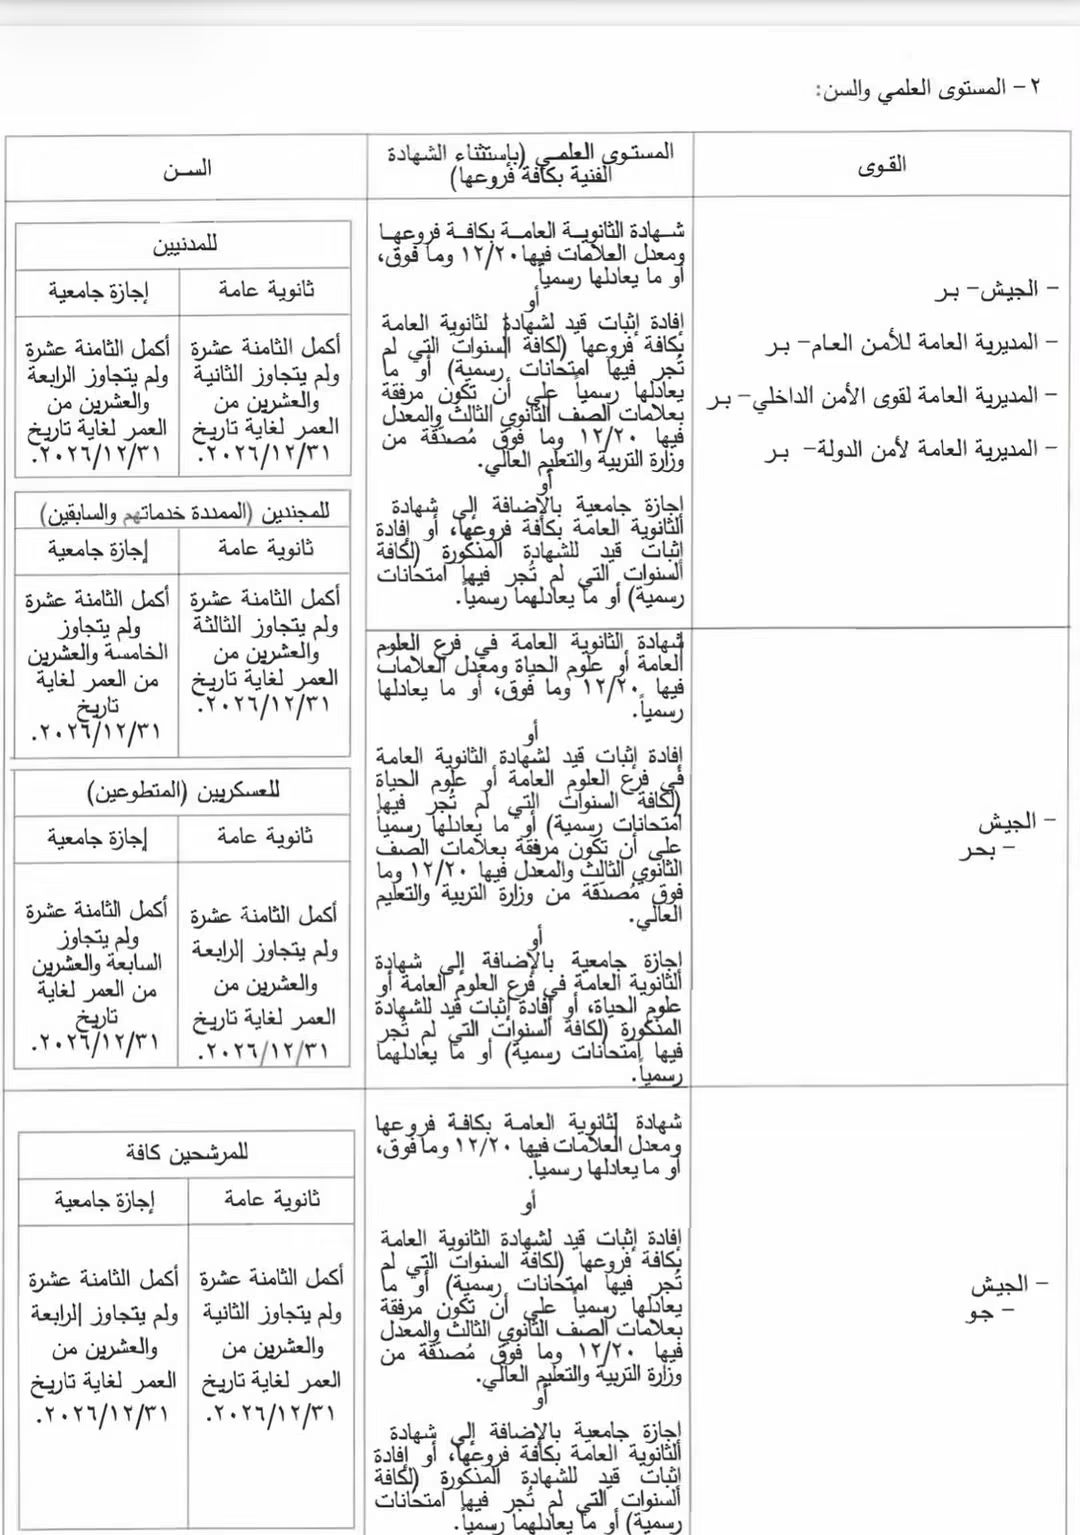 ٢- المستوى العلمي والسن:
القوى
المستوى العلمي (بإستثناء الشهادة
الفنية بكافة فروعها)
السن
- الجيش- بر
- المديرية العامة للأمن العام- بر
- المديرية العامة لقوى الأمن الداخلي- بر
- المديرية العامة لأمن الدولة- بر
شهادة الثانوية العامة بكافة فروعها
ومعدل العلامات فيها ١٢/٢٠ وما فوق،
أو ما يعادلها رسمياً
أو
إفادة إثبات قيد لشهادة لثانوية العامة
بكافة فروعها (لكافة السنوات التي لم
تُجر فيها امتحانات رسمية) أو ما
يعادلها رسمياً على أن تكون مرفقة
بعلامات الصف الثانوي الثالث والمعدل
فيها ١٢/٢٠ وما فوق مُصدّقة من
وزارة التربية والتعليم العالي.
أو
إجازة جامعية بالإضافة إلى شهادة
الثانوية العامة بكافة فروعها، أو إفادة
إثبات قيد للشهادة المذكورة (لكافة
السنوات التي لم تُجر فيها امتحانات
رسمية) أو ما يعادلهما رسمياً.
للمدنيين
ثانوية عامة
إجازة جامعية
أكمل الثامنة عشرة
ولم يتجاوز الثانية
والعشرين من
العمر لغاية تاريخ
٢٠٢٦/١٢/٣١.
أكمل الثامنة عشرة
ولم يتجاوز الرابعة
والعشرين من
العمر لغاية تاريخ
٢٠٢٦/١٢/٣١.
للمجندين (الممددة خدماتهم والسابقين)
ثانوية عامة
إجازة جامعية
أكمل الثامنة عشرة
ولم يتجاوز الثالثة
والعشرين من
العمر لغاية تاريخ
٢٠٢٦/١٢/٣١.
أكمل الثامنة عشرة
ولم يتجاوز
الخامسة والعشرين
من العمر لغاية
تاريخ
٢٠٢٦/١٢/٣١.
للعسكريين (المتطوعين)
ثانوية عامة
إجازة جامعية
أكمل الثامنة عشرة
ولم يتجاوز الرابعة
والعشرين من
العمر لغاية تاريخ
٢٠٢٦/١٢/٣١.
أكمل الثامنة عشرة
ولم يتجاوز
السابعة والعشرين
من العمر لغاية
تاريخ
٢٠٢٦/١٢/٣١.
- الجيش
- بحر
شهادة الثانوية العامة في فرع العلوم
العامة أو علوم الحياة ومعدل العلامات
فيها ١٢/٢٠ وما فوق، أو ما يعادلها
رسمياً.
أو
إفادة إثبات قيد لشهادة الثانوية العامة
في فرع العلوم العامة أو علوم الحياة
(لكافة السنوات التي لم تُجر فيها
امتحانات رسمية) أو ما يعادلها رسمياً
على أن تكون مرفقة بعلامات الصف
الثانوي الثالث والمعدل فيها ١٢/٢٠ وما
فوق مُصدّقة من وزارة التربية والتعليم
العالي.
أو
إجازة جامعية بالإضافة إلى شهادة
الثانوية العامة في فرع العلوم العامة أو
علوم الحياة، أو إفادة إثبات قيد للشهادة
المذكورة (لكافة السنوات التي لم تُجر
فيها امتحانات رسمية) أو ما يعادلهما
رسمياً.
- الجيش
- جو
شهادة لثانوية العامة بكافة فروعها
ومعدل العلامات فيها ١٢/٢٠ وما فوق،
أو ما يعادلها رسمياً.
أو
إفادة إثبات قيد لشهادة الثانوية العامة
بكافة فروعها (لكافة السنوات التي لم
تُجر فيها امتحانات رسمية) أو ما
يعادلها رسمياً على أن تكون مرفقة
بعلامات الصف الثانوي الثالث والمعدل
فيها ١٢/٢٠ وما فوق مُصدّقة من
وزارة التربية والتعليم العالي.
أو
إجازة جامعية بالإضافة إلى شهادة
الثانوية العامة بكافة فروعها، أو إفادة
إثبات قيد للشهادة المذكورة (لكافة
السنوات التي لم تُجر فيها امتحانات
رسمية) أو ما يعادلهما رسمياً.
للمرشحين كافة
ثانوية عامة
إجازة جامعية
أكمل الثامنة عشرة
ولم يتجاوز الثانية
والعشرين من
العمر لغاية تاريخ
٢٠٢٦/١٢/٣١.
أكمل الثامنة عشرة
ولم يتجاوز الرابعة
والعشرين من
العمر لغاية تاريخ
٢٠٢٦/١٢/٣١.